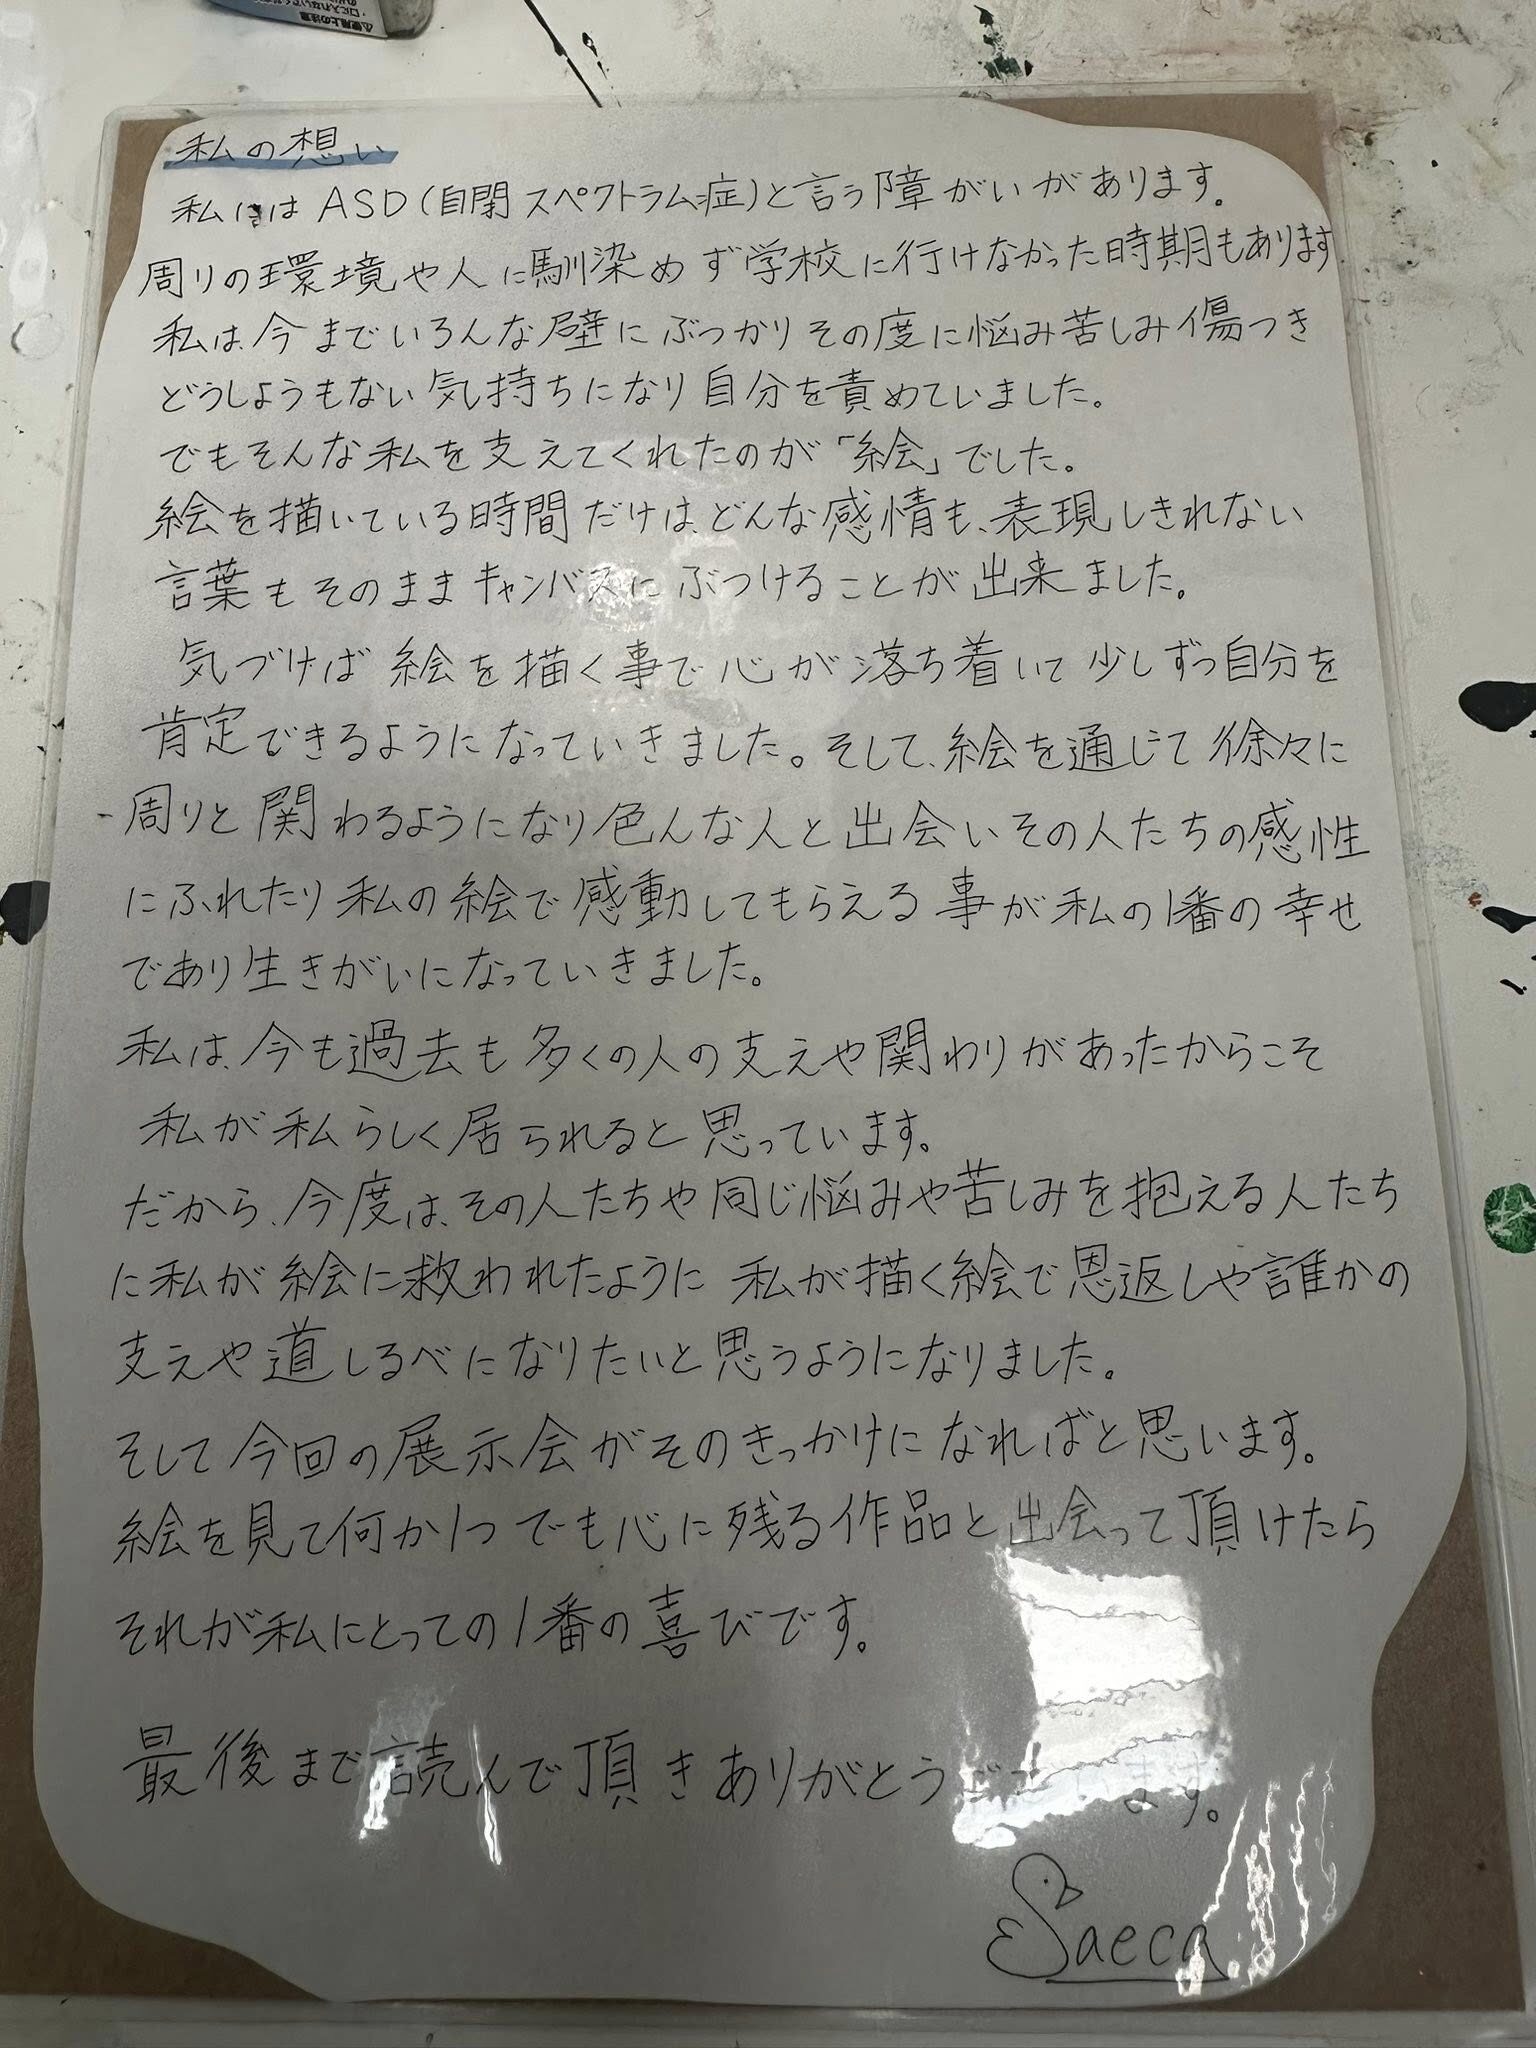 私の想い
私にはASD(自閉スペクトラム症)と言う障がいがあります。
周りの環境や人に馴染めず学校に行けなかった時期もあります
私は、今までいろんな壁にぶつかりその度に悩み苦しみ傷つき
どうしようもない気持ちになり自分を責めていました。
でもそんな私を支えてくれたのが「絵」でした。
絵を描いている時間だけは、どんな感情も、表現しきれない
言葉もそのままキャンバスにぶつけることが出来ました。
気づけば絵を描く事で心が落ち着いて少しずつ自分を
肯定できるようになっていきました。そして、絵を通じて徐々に
周りと関わるようになり色んな人と出会いその人たちの感性
にふれたり私の絵で感動してもらえる事が私の1番の幸せ
であり生きがいになっていきました。
私は、今も過去も多くの人の支えや関わりがあったからこそ
私が私らしく居られると思っています。
だから、今度は、その人たちや同じ悩みや苦しみを抱える人たち
に私が絵に救われたように私が描く絵で恩返しや誰かの
支えや道しるべになりたいと思うようになりました。
そして今回の展示会がそのきっかけになればと思います。
絵を見て何か1つでも心に残る作品と出会って頂けたら
それが私にとっての1番の喜びです。
最後まで読んで頂きありがとうございます。
Saeca